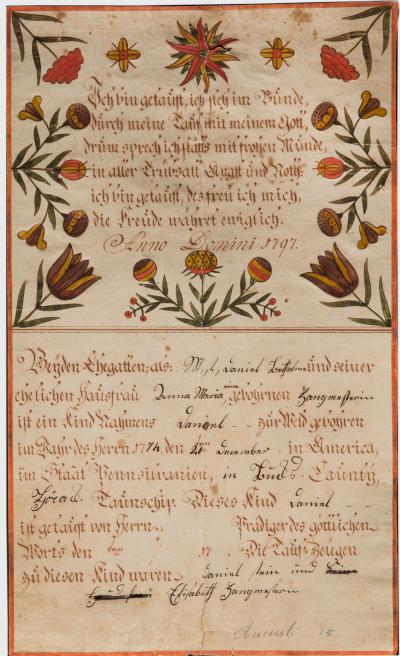 Ich bin getauft, ich steh im Bunde,
durch meine Tauf mit meinem Gott,
drum sprech ich stäts mit frohen Munde,
in aller Trübsall Angst und Noth.
ich bin getauft, des freu ich mich,
die Freude währet ewiglich.
Anno Domini 1797.
Beyden Ehegatten, als: Daniel und seiner
ehelichen Hausfrau Anna Maria, eine gebohrnen Zangmeisterin
ist ein Kind Nahmens Daniel -- zur Welt gebohren
im Jahr des Herrn 1774. den December in America,
im Staat Pennsilvanien, in Bucks Caunty,
Taunschip. Dieses Kind Daniel
ist getauft von Herrn Prediger des göttlichen
Worts den 17 . Die Taufs Zeugen
zu diesen Kind waren Daniel Stein und
Elisabeth Zangmeisterin
15